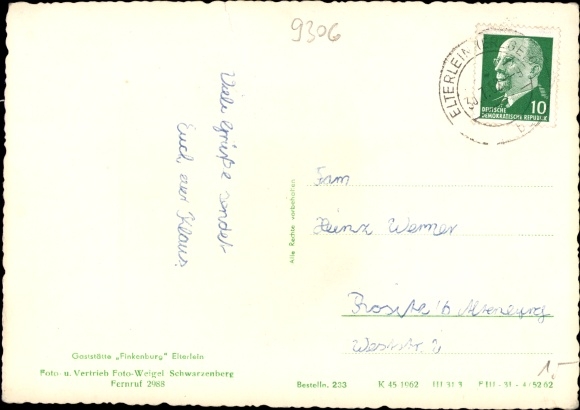 9306
ELTERLEIN
10
DEUTSCHE
DEMOKRATISCHE REPUBLIK
Viele Grüße sendet
Euch euer Klaus.
Alle Rechte vorbehalten
Fam
Heinz Werner
Rositz b Altenburg
Weststr.
Gaststätte „Finkenburg" Elterlein
Foto- u. Vertrieb Foto-Weigel Schwarzenberg
Fernruf 2988
Bestelln. 233 K 45 1062 III 31 3 F III - 31 - 4/52 62
1,-